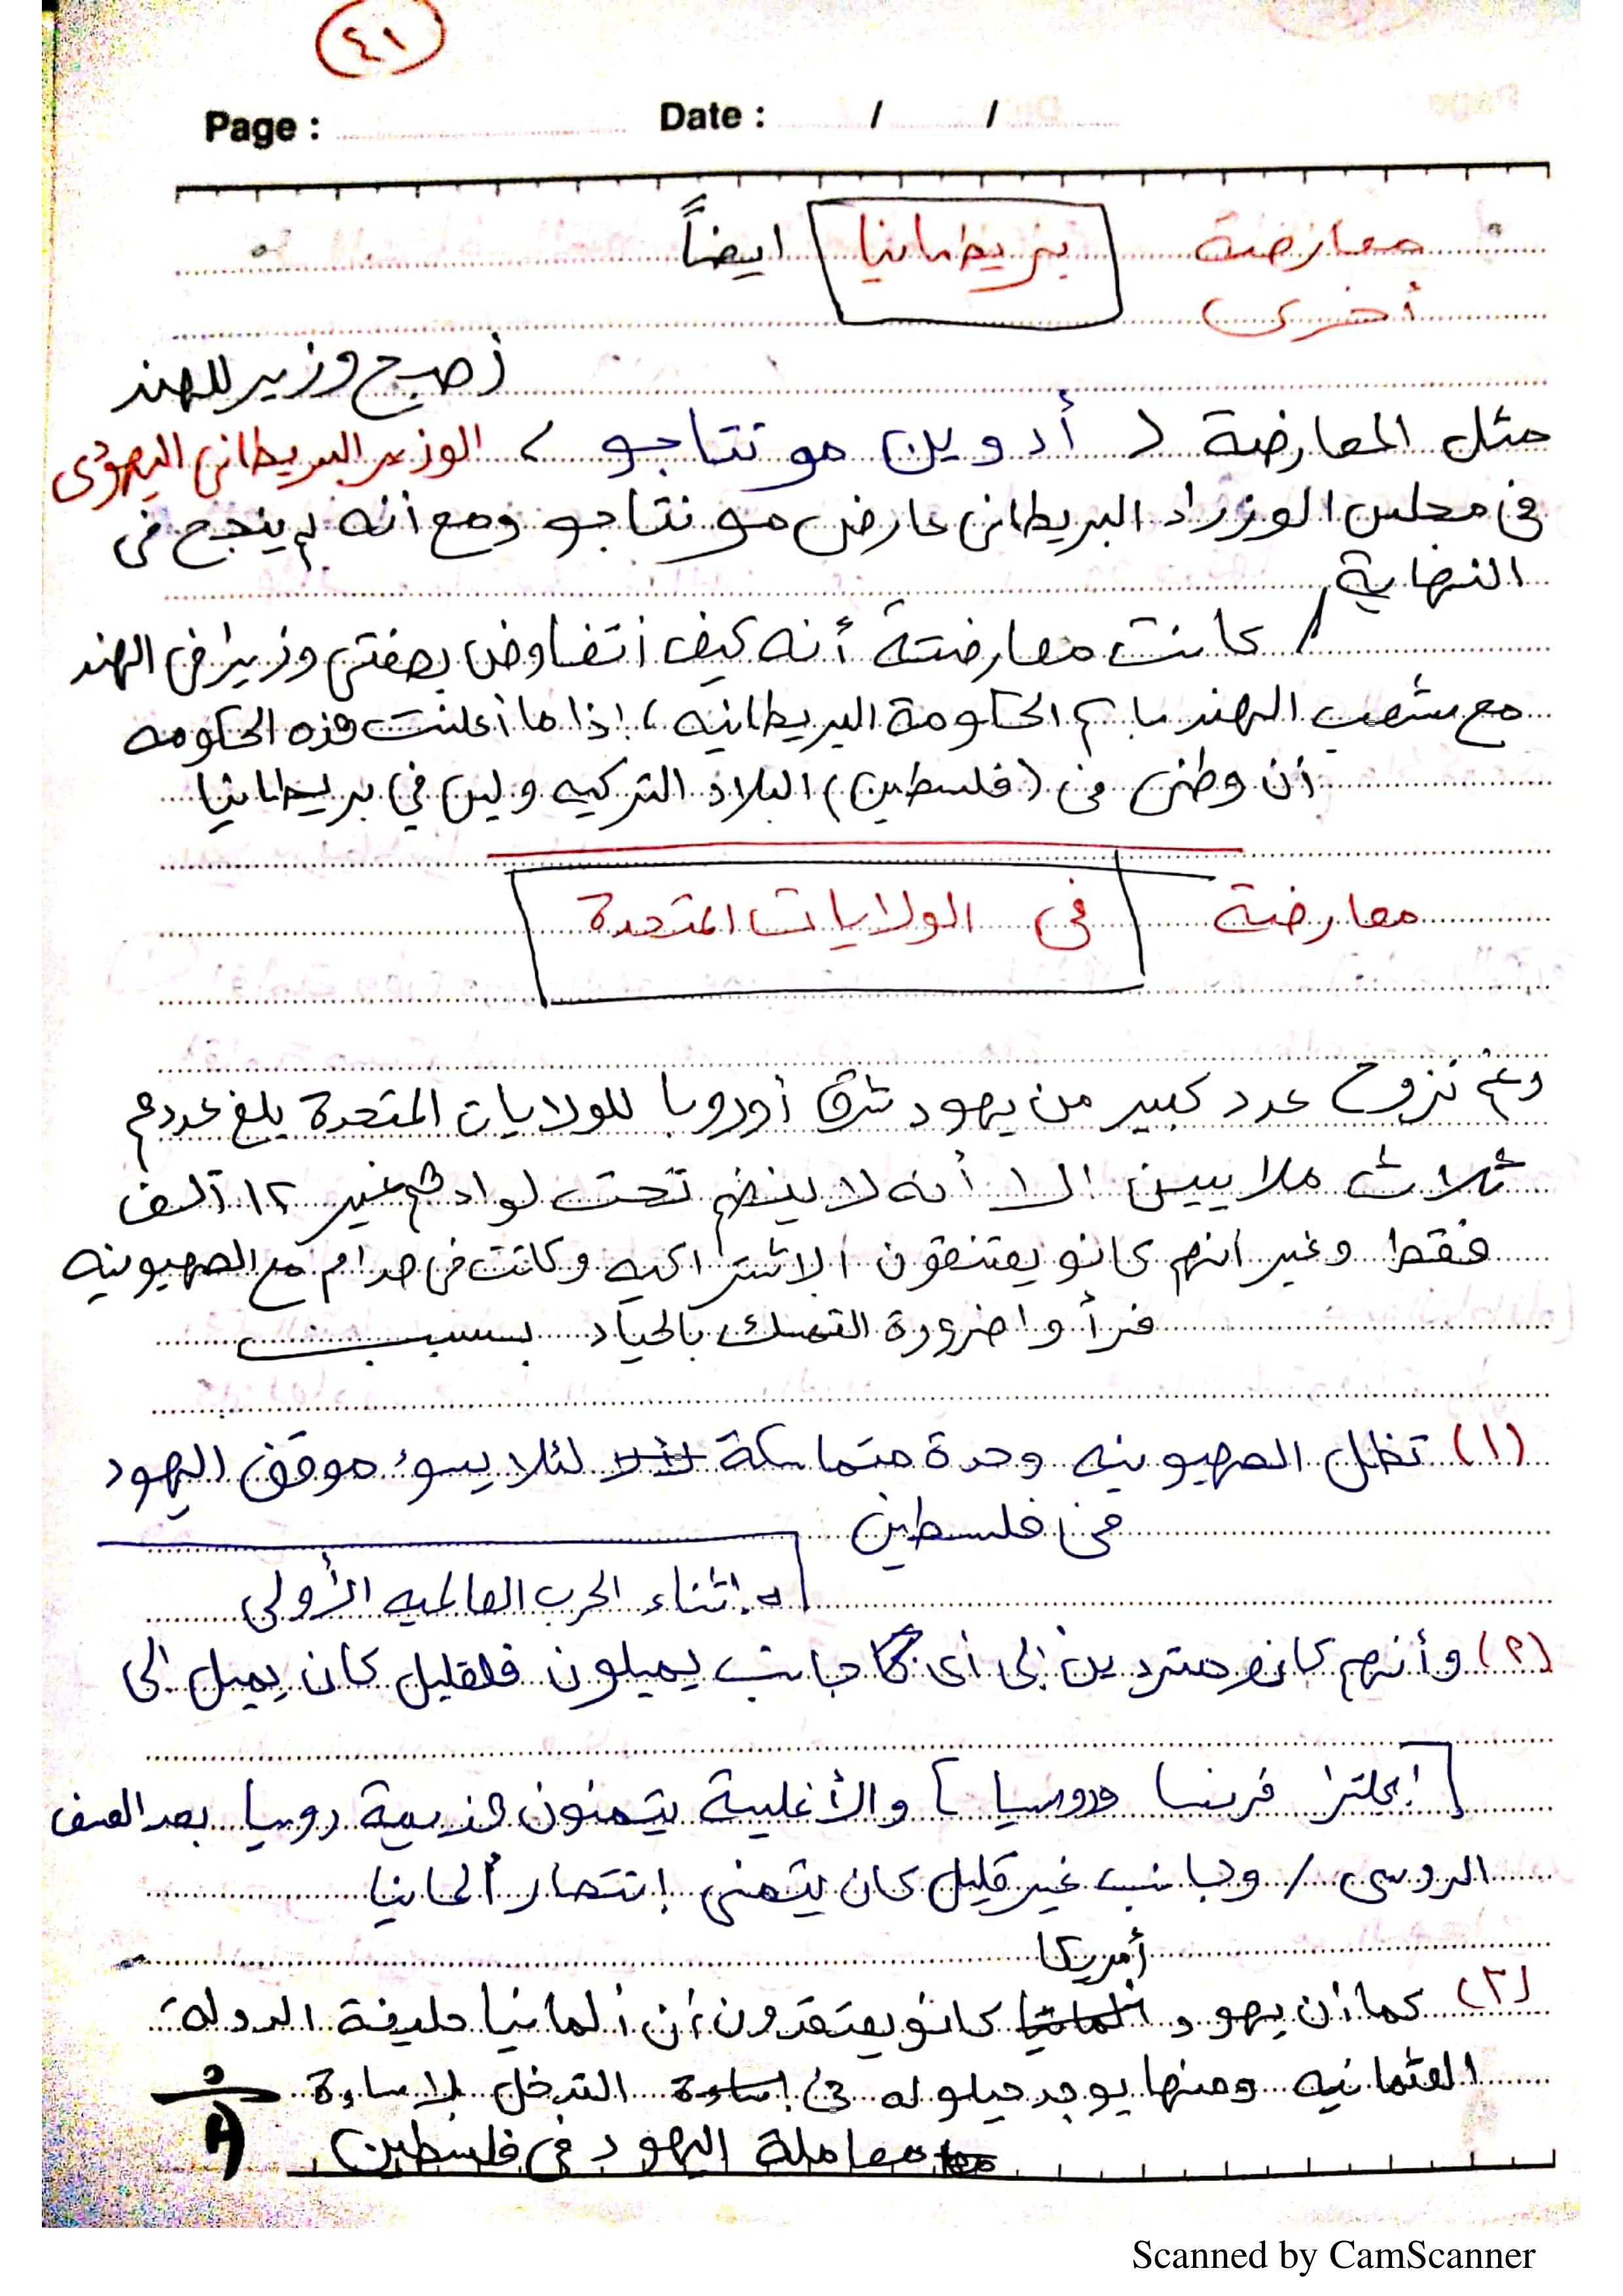 ٤١
Page : Date : / /
معارضة بريطانيا ايضاً
أخرى
أصبح وزير للهند
مثل المعارضة ( أدوين مونتاجو ) الوزير البريطاني اليهودى
فى مجلس الوزراء البريطانى عارض مونتاجو ومع أنه لم ينجح فى
النهاية
/ كانت معارضتة أنه كيف اتفاوض بصفتى وزيرا فى الهند
مع شعب الهند باسم الحكومة البريطانيه ، إذا ما أعلنت هذه الحكومه
أن وطنى فى (فلسطين) البلاد التركيه وليس في بريطانيا
معارضة فى الولايات المتحدة
رغم نزوح عدد كبير من يهود شرق أوروبا للولايات المتحدة بلغ عددهم
ثلاث ملايين الا أنه لا ينضم تحت لوادهم غير ١٢ آلف
فقط وغير انهم كانو يعتنقون الاشتراكيه وكانت فى صدام مع الصهيونيه
فرأوا ضرورة التمسك بالحياد بسبب
(١) تظل الصهيونيه وحدة متماسكة لئلا يسوء موقف اليهود
فى فلسطين
اثناء الحرب العالميه الأولى
(٢) وأنهم كانو مترددين إلى أى جانب يميلون فلقليل كان يميل إلى
[ إنجلترا فرنسا وروسيا ] والأغلبية يتمنون هزيمة روسيا بعد العنف
الروسى / وجانب غير قليل كان يتمنى إنتصار ألمانيا
أمريكا
(٣) كما أن يهود المانيا كانو يعتقدون أن ألمانيا حليفة الدولة
العثمانيه ومنها يوجد حيلوله فى إساءة التدخل لاساءة
معاملة اليهود فى فلسطين
Scanned by CamScanner